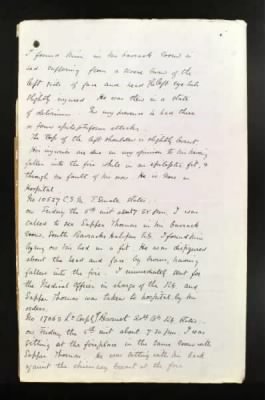 I found him in his barrack room in
bed suffering from a severe burn of the
left side of face and head left eye lids
slightly injured He was then in a state
of delirium In my presence he had three
or four epileptiform attacks
The top of the left shoulder is slightly burnt
His injuries are due in my opinion to his having
fallen into the fire while in an epileptic fit, &
through no fault of his own He is now in
Hospital
No 10557 C.S.M. states
on Friday the 5th inst about 7.50 p.m. I was
called to see Sapper Thomas in his barrack
room, South Barracks I found him
lying on his bed in a fit He was disfigured
about the head and face by burns, having
fallen into the fire. I immediately sent for
the Medical Officer in charge of the and
Sapper Thomas was taken to hospital by his
orders.
No 17063 L/Corpl states
on Friday the 5th inst about 7. p.m. I was
sitting at the fireplace in the same room with
Sapper Thomas. He was sitting with his back
against the chimney breast at the fire